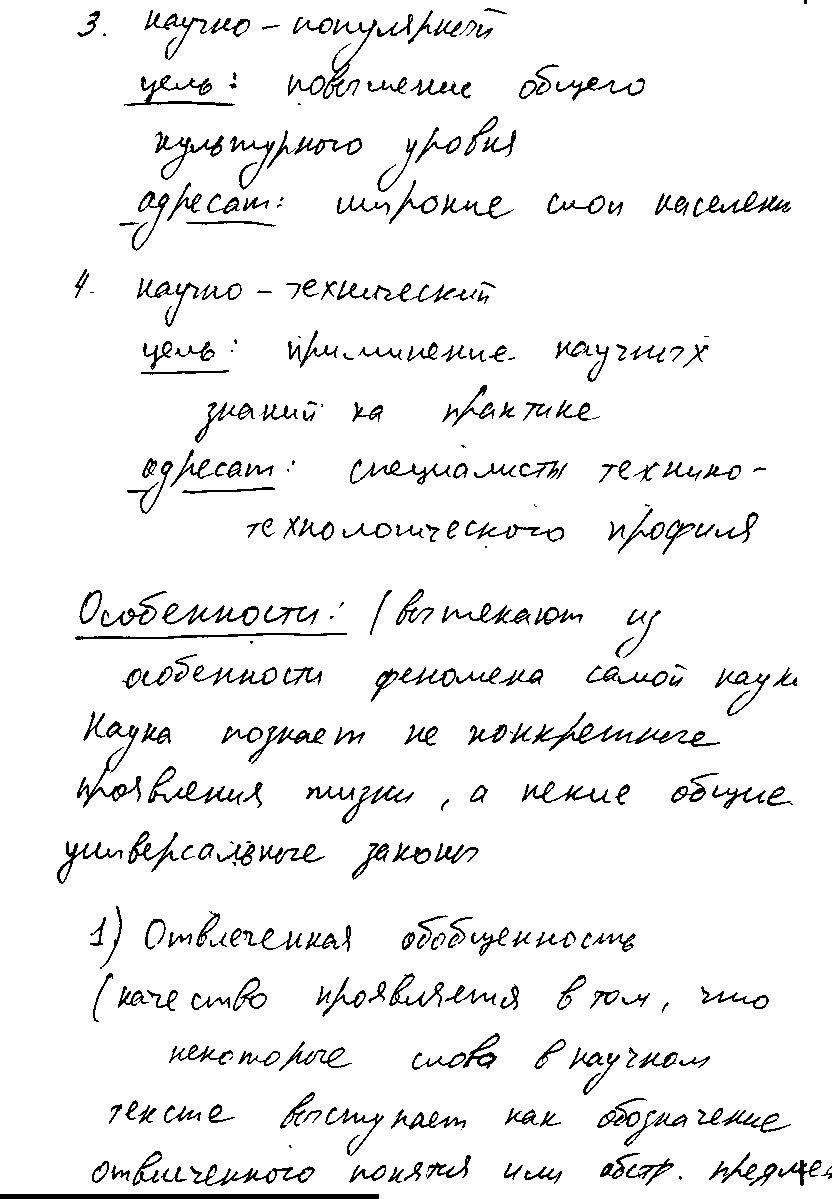 3. научно – популярный
цель: повышение общего
культурного уровня
адресат: широкие слои населени
4. научно – технический
цель: приминение научных
знаний на практике
адресат: специалисты технико-
технологического профиля
Особенности: (вытекают из
особенности феномена самой науки
Наука познает не конкретные
проявления жизни, а некие общие
универсальные законы
1) Отвлеченная обобщенность
(качество проявляется в том, что
некоторые слова в научном
тексте выступает как обозначение
отвлеченного понятия или абстр. предмет